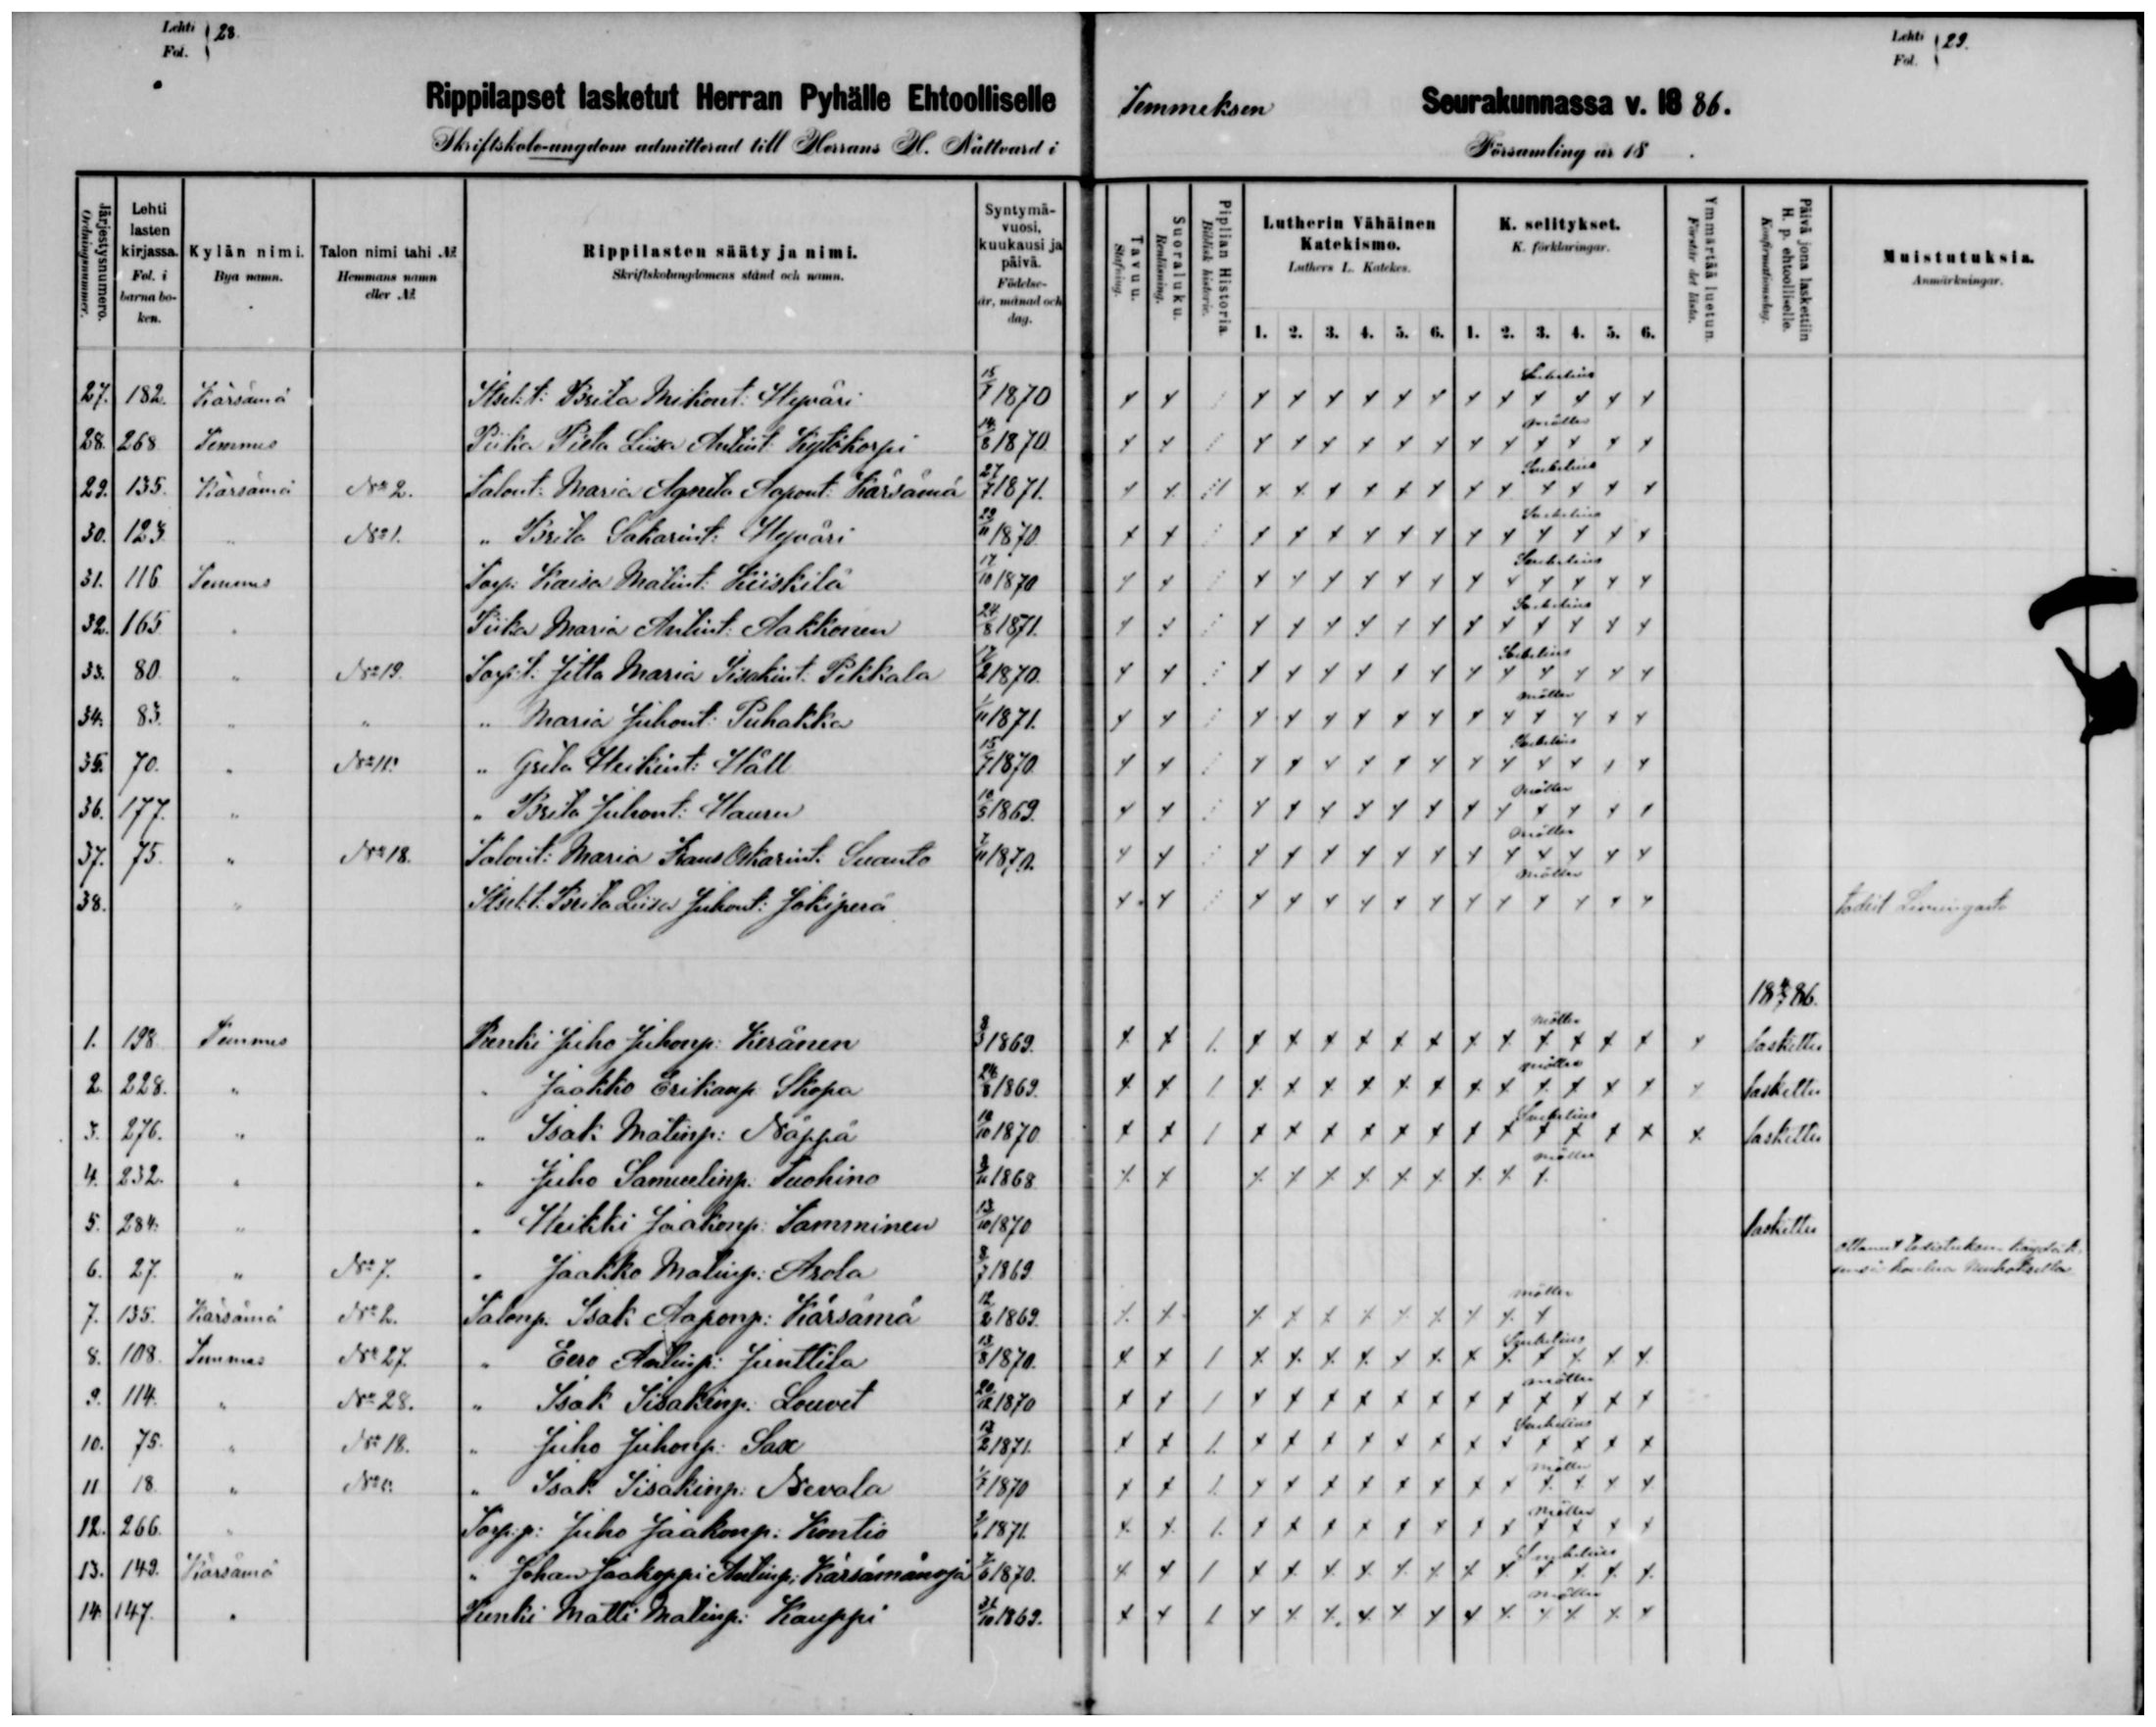 Lehti Fol. 28.
Lehti Fol. 29.
Rippilapset lasketut Herran Pyhälle Ehtoolliselle Temmeksen Seurakunnassa v. 1886.
Skriftskolo-ungdom admitterad till Herrans H. Nattvard i Församling år 18 .
Järjestysnumero. Ordningsnummer.
Lehti lasten kirjassa. Fol. i barna boken.
Kylän nimi. Bya namn.
Talon nimi tahi № Hemmans namn eller №
Rippilasten sääty ja nimi. Skriftskolungdomens stånd och namn.
Syntymävuosi, kuukausi ja päivä. Födelseår, månad och dag.
Tavuu. Stafning.
Suoraluku. Renläsning.
Piplian Historia. Biblisk historie.
Lutherin Vähäinen Katekismo. Luthers L. Katekes.
K. selitykset. K. förklaringar.
Ymmärtää luetun. Förstår det lästa.
Päivä jona laskettiin H. p. ehtoolliselle. Konfirmationsdag.
Muistutuksia. Anmärkningar.
1. 2. 3. 4. 5. 6. 1. 2. 3. 4. 5. 6.
27. 182. Kärsämä Itsel. t: Brita Mikont: Hyväri 15/7 1870
28. 268 Temmes Piika Liisa Antint: Kylökorpi 14/8 1870 Möller
29. 135. Kärsämä No 2. Talont: Maria Agneta Aapont: Kärsämä 27/7 1871.
30. 123. " No 1. " Brita Sakarint: Hyväri 29/11 1870
31. 116 Temmes Torp: Kaisa Matint: Kiiskilä 17/10 1870
32. 165 " Piika Maria Antint: Aakkonen 24/8 1871.
33. 80 " No 19. Torp: t: Maria Iisakint: Pikkala 17/2 1870.
34. 83. " " " Maria Juhont: Puhakka 1/11 1871. Möller
35. 70. " No 11. " Greta Heikint: Häll 15/7 1870
36. 177. " " Brita Juhont: Hauru 10/5 1869. Möller
37. 75. " No 18. Talont: Maria Frans Oskarint. Suanto 7/11 1870. Möller
38. " Itsel. t. Brita Liisa Juhont: Jokiperä Möller
18 4/7 86.
1. 198 Temmes Renki Juho Juhonp: Keränen 8/3 1869. Möller laskettu
2. 228. " " Jaakko Erikanp: Skopa 24/8 1869. Möller laskettu
3. 276. " " Isak Matinp: Näppä 10/10 1870 laskettu
4. 232. " " Juho Samuelinp: Tuohino 8/11 1868 Möller
5. 284. " " Heikki Jaakonp: Tamminen 13/10 1870 laskettu
6. 27. " No 7. " Jaakko Matinp: Arola 8/7 1869 ottanut todistuksen
7. 135. Kärsämä No 2. Talonp. Isak Aaponp: Kärsämä 12/2 1869. Möller
8. 108. Temmes No 27. " Eero Antinp: Junttila 13/8 1870.
9. 114. " No 28. " Isak Iisakinp: Louvet 20/12 1870 Möller
10. 75. " No 18. " Juho Juhonp: Sax 12/2 1871.
11 18. " " Isak Iisakinp: Nevala 1/7 1870 Möller
12. 266. " Torp: p: Juho Jaakonp: Kontio 1871. Möller
13. 149. Kärsämä " Johan Jaakoppi Antinp: Kärsämänoja 7/6 1870.
14. 147. " Renki Matti Matinp: Kauppi 31/10 1869. Möller